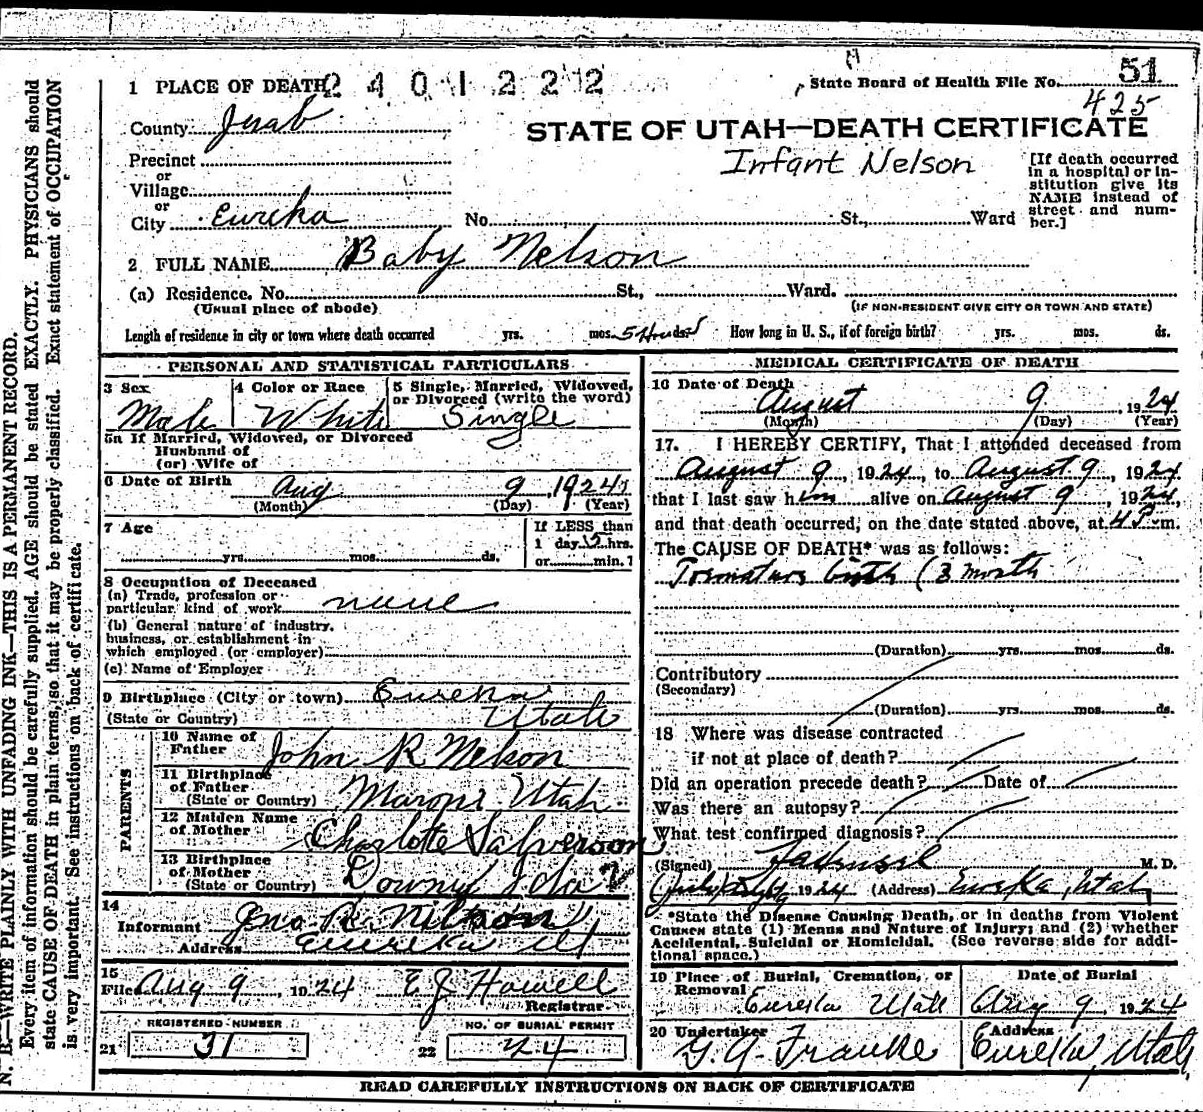 N. B.—WRITE PLAINLY WITH UNFADING INK—THIS IS A PERMANENT RECORD.
Every item of information should be carefully supplied. AGE should be stated EXACTLY. PHYSICIANS should
state CAUSE OF DEATH in plain terms, so that it may be properly classified. Exact statement of OCCUPATION
is very important. See instructions on back of certificate.
1 PLACE OF DEATH 2 4 0 1 2 2 2 State Board of Health File No. 51
425
County Juab
STATE OF UTAH—DEATH CERTIFICATE
Precinct
or
Village
or
City Eureka No. St., Ward
Infant Nelson
[If death occurred
in a hospital or in-
stitution give its
NAME instead of
street and num-
ber.]
2 FULL NAME Baby Nelson
(a) Residence. No. St., Ward.
(Usual place of abode) (IF NON-RESIDENT GIVE CITY OR TOWN AND STATE)
Length of residence in city or town where death occurred yrs. mos. 5 Hours ds. How long in U. S., if of foreign birth? yrs. mos. ds.
PERSONAL AND STATISTICAL PARTICULARS
3 Sex 4 Color or Race 5 Single, Married, Widowed,
or Divorced (write the word)
Male White Single
5a If Married, Widowed, or Divorced
Husband of
(or) Wife of
6 Date of Birth Aug 9, 1924
(Month) (Day) (Year)
7 Age If LESS than
1 day 5 hrs.
yrs. mos. ds. or min.?
8 Occupation of Deceased
(a) Trade, profession or
particular kind of work none
(b) General nature of industry,
business, or establishment in
which employed (or employer)
(c) Name of Employer
9 Birthplace (City or town) Eureka
(State or Country) Utah
PARENTS
10 Name of
Father John R Nelson
11 Birthplace
of Father
(State or Country) Utah
12 Maiden Name
of Mother Charlotte
13 Birthplace
of Mother
(State or Country) Downey Ida
14
Informant Jno. R. Nelson
Address Eureka Ut
15
Filed Aug 9 1924 E J Howell
Registrar
REGISTERED NUMBER
21 31
NO. OF BURIAL PERMIT
22 24
MEDICAL CERTIFICATE OF DEATH
16 Date of Death
August 9, 1924
(Month) (Day) (Year)
17. I HEREBY CERTIFY, That I attended deceased from
August 9, 1924, to August 9, 1924
that I last saw him alive on August 9, 1924,
and that death occurred, on the date stated above, at 4 P. m.
The CAUSE OF DEATH* was as follows:
Premature birth (8 month
(Duration) yrs. mos. ds.
Contributory
(Secondary)
(Duration) yrs. mos. ds.
18 Where was disease contracted
if not at place of death?
Did an operation precede death? Date of
Was there an autopsy?
What test confirmed diagnosis?
(Signed) M. D.
1924 (Address) Eureka, Utah
*State the Disease Causing Death, or in deaths from Violent
Causes state (1) Menus and Nature of Injury; and (2) whether
Accidental, Suicidal or Homicidal. (See reverse side for addi-
tional space.)
19 Place of Burial, Cremation, or
Removal Date of Burial
Eureka Utah Aug 9 1924
20 Undertaker Address
G. A. Franke Eureka, Utah.
READ CAREFULLY INSTRUCTIONS ON BACK OF CERTIFICATE